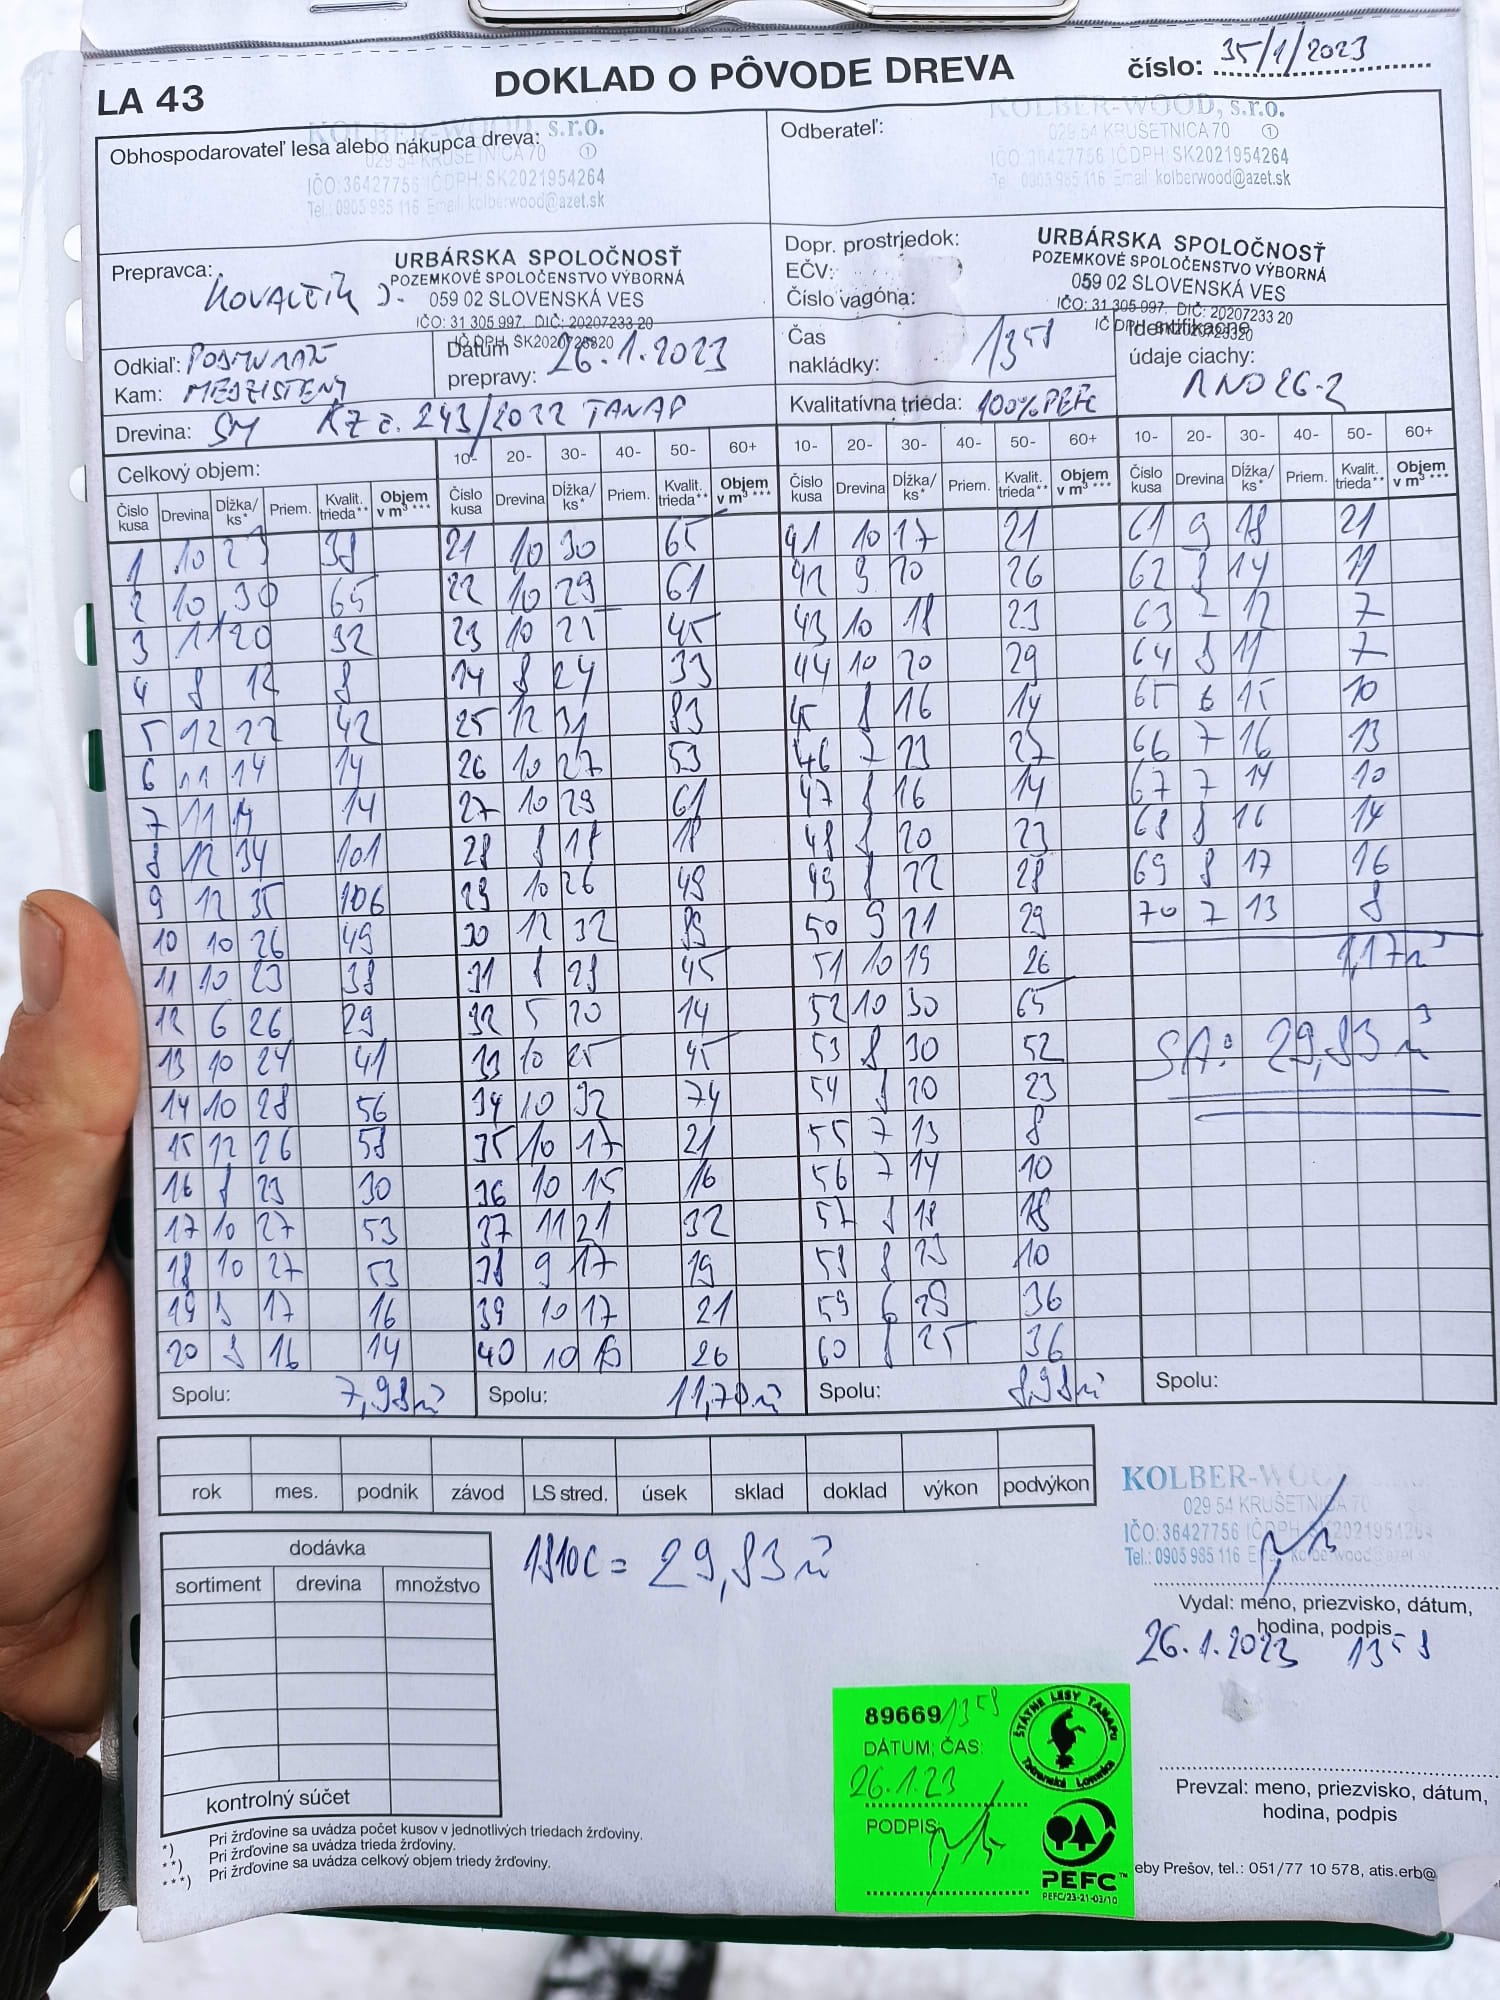 LA 43
DOKLAD O PÔVODE DREVA
číslo: 35/1/2023
Obhospodarovateľ lesa alebo nákupca dreva:
KOLBER-WOOD, s.r.o.
029 54 KRUŠETNICA 70 1
IČO: 36427756 IČDPH: SK2021954264
Tel.: 0905 985 116 Email: kolberwood@azet.sk
Odberateľ:
KOLBER-WOOD, s.r.o.
029 54 KRUŠETNICA 70 1
IČO: 36427756 IČDPH: SK2021954264
Tel.: 0905 985 116 Email: kolberwood@azet.sk
Prepravca:
URBÁRSKA SPOLOČNOSŤ
POZEMKOVÉ SPOLOČENSTVO VÝBORNÁ
059 02 SLOVENSKÁ VES
IČO: 31 305 997. DIČ: 20207233 20
Dopr. prostriedok:
EČV:
Číslo vagóna:
URBÁRSKA SPOLOČNOSŤ
POZEMKOVÉ SPOLOČENSTVO VÝBORNÁ
059 02 SLOVENSKÁ VES
IČO: 31 305 997. DIČ: 20207233 20
Odkiaľ:
Kam: MEDZISTENY
Dátum prepravy: 26.1.2023
Čas nakládky: 13 58
Identifikačné
údaje ciachy:
Drevina: SM KZ č. 243/2022 TANAP
Kvalitatívna trieda: 100% PEFC
Celkový objem:
10- 20- 30- 40- 50- 60+ 10- 20- 30- 40- 50- 60+ 10- 20- 30- 40- 50- 60+
Číslo kusa Drevina Dĺžka/ks* Priem. Kvalit. trieda** Objem v m³ *** Číslo kusa Drevina Dĺžka/ks* Priem. Kvalit. trieda** Objem v m³ *** Číslo kusa Drevina Dĺžka/ks* Priem. Kvalit. trieda** Objem v m³ *** Číslo kusa Drevina Dĺžka/ks* Priem. Kvalit. trieda** Objem v m³ ***
1 10 23 38 21 10 30 65 41 10 17 21 61 9 18 21
2 10 30 65 22 10 29 61 42 9 20 26 62 8 14 11
3 11 20 32 23 10 25 45 43 10 18 23 63 12 7
4 8 12 8 24 8 24 33 44 10 20 29 64 8 11 7
5 12 22 42 25 12 31 83 45 8 16 14 65 6 15 10
6 11 14 14 26 10 27 53 46 7 23 27 66 7 16 13
7 11 14 14 27 10 29 61 47 8 16 14 67 7 14 10
8 12 34 101 28 8 18 18 48 8 20 23 68 8 16 14
9 12 35 106 29 10 26 49 49 8 22 28 69 8 17 16
10 10 26 49 30 12 32 89 50 9 21 29 70 7 13 8
11 10 23 38 31 8 28 45 51 10 19 26 1,17 m³
12 6 26 29 32 5 20 14 52 10 30 65
13 10 24 41 33 10 25 45 53 8 30 52 SA: 29,83 m³
14 10 28 56 34 10 32 74 54 8 20 23
15 12 26 58 35 10 17 21 55 7 13 8
16 8 23 30 36 10 15 16 56 7 14 10
17 10 27 53 37 11 21 32 57 8 18 18
18 10 27 53 38 9 17 19 58 8 10
19 17 16 39 10 17 21 59 6 29 36
20 8 16 14 40 10 26 60 8 25 36
Spolu: 7,98 m³ Spolu: 11,70 m³ Spolu: 8,98 m³ Spolu:
rok mes. podnik závod LS stred. úsek sklad doklad výkon podvýkon
dodávka
sortiment drevina množstvo
kontrolný súčet
= 29,83 m³
KOLBER-WOOD
029 54 KRUŠETNICA 70
IČO: 36427756 IČDPH: SK2021954264
Tel.: 0905 985 116 Email: kolberwood@azet.sk
Vydal: meno, priezvisko, dátum,
hodina, podpis
26.1.2023 13 58
Prevzal: meno, priezvisko, dátum,
hodina, podpis
*) Pri žrďovine sa uvádza počet kusov v jednotlivých triedach žrďoviny.
**) Pri žrďovine sa uvádza trieda žrďoviny.
***) Pri žrďovine sa uvádza celkový objem triedy žrďoviny.
89669 13 58
DÁTUM, ČAS:
26.1.23
PODPIS:
ŠTÁTNE LESY TANAPU
Tatranská Lomnica
PEFC™
PEFC/23-21-03/10
eby Prešov, tel.: 051/77 10 578, atis.erb@